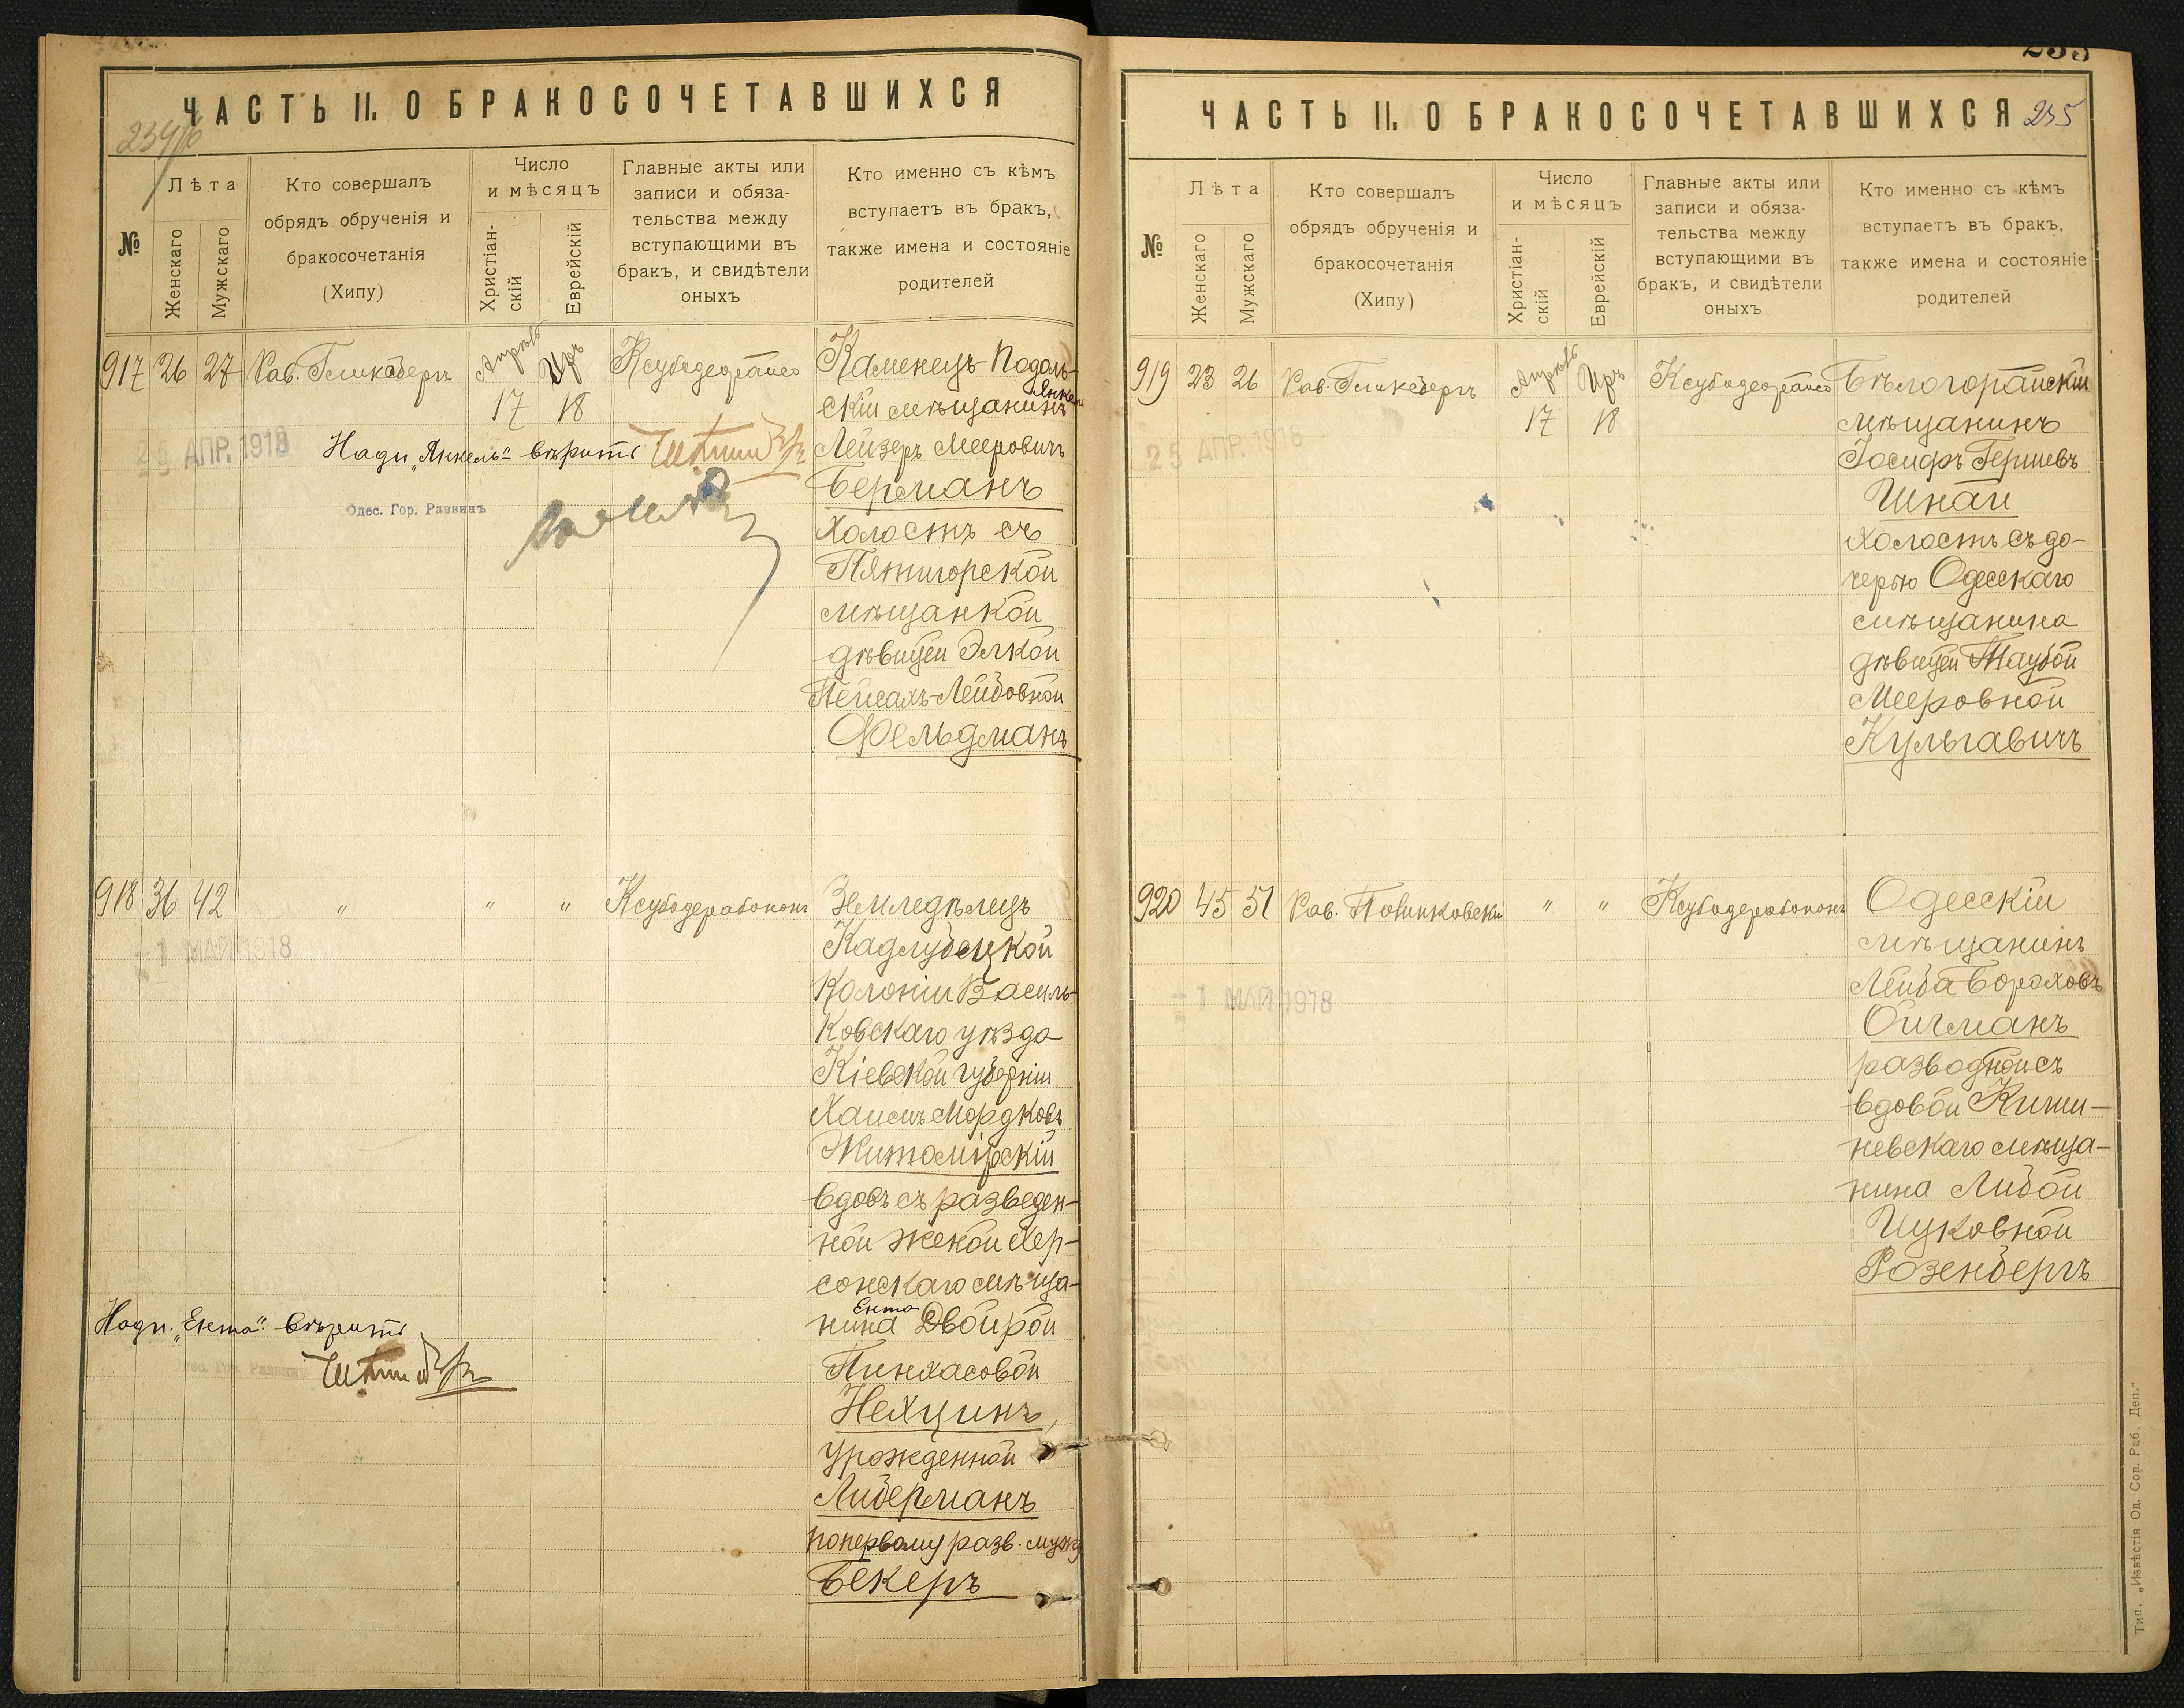 ЧАСТЬ II. О БРАКОСОЧЕТАВШИХСЯ
№
Лѣта
Женскаго
Мужскаго
Кто совершалъ
обрядъ обрученія и
бракосочетанія
(Хипу)
Число
и мѣсяцъ
Христіан-
скій
Еврейскій
Главные акты или
записи и обяза-
тельства между
вступающими въ
бракъ, и свидѣтели
оныхъ
Кто именно съ кѣмъ
вступаетъ въ бракъ,
также имена и состояніе
родителей
917 26 27 Рав. Гликсбергъ Апрѣль 17 Иръ 18
Каменецъ-Подоль-
Янкель
скій мѣщанинъ
Лейзеръ Мееровичъ
Берманъ
холостъ съ
Пятигорской
мѣщанкой
дѣвицей Элкой
Пейсахъ-Лейбовной
Фельдманъ
АПР. 1918
Надп. „Янкель" вѣрить
Одес. Гор. Раввинъ
918 36 42 " " "
Земледѣлецъ
Кадлубецкой
Колоніи Василь-
ковскаго уѣзда
Кіевской губерніи
Хаимъ Мордковъ
Житомірскій
вдовъ съ разведен-
ной женой Хер-
сонскаго мѣща-
Ента
нина Двойрой
Пинхасовой
Нехцинъ,
урожденной
Либерманъ
по первому разв. мужу
Бекеръ
1 МАЙ 1918
Надп. „Ента" вѣрить
ЧАСТЬ II. О БРАКОСОЧЕТАВШИХСЯ 235
№
Лѣта
Женскаго
Мужскаго
Кто совершалъ
обрядъ обрученія и
бракосочетанія
(Хипу)
Число
и мѣсяцъ
Христіан-
скій
Еврейскій
Главные акты или
записи и обяза-
тельства между
вступающими въ
бракъ, и свидѣтели
оныхъ
Кто именно съ кѣмъ
вступаетъ въ бракъ,
также имена и состояніе
родителей
919 23 26 Рав. Гликсбергъ Апрѣль 17 Иръ 18
Бѣлогорайскій
мѣщанинъ
Іосифъ Гершевъ
Шнай
холостъ съ до-
черью Одесскаго
мѣщанина
дѣвицей Таубой
Мееровной
Кульгавичъ
25 АПР. 1918
920 45 51 " "
Одесскій
мѣщанинъ
Лейба Бороховъ
Ойхманъ
разводной съ
вдовой Киши-
невскаго мѣща-
нина Либой
Ицковной
Розенбергъ
1 МАЙ 1918
Тип. „Извѣстія Од. Сов. Раб. Деп."